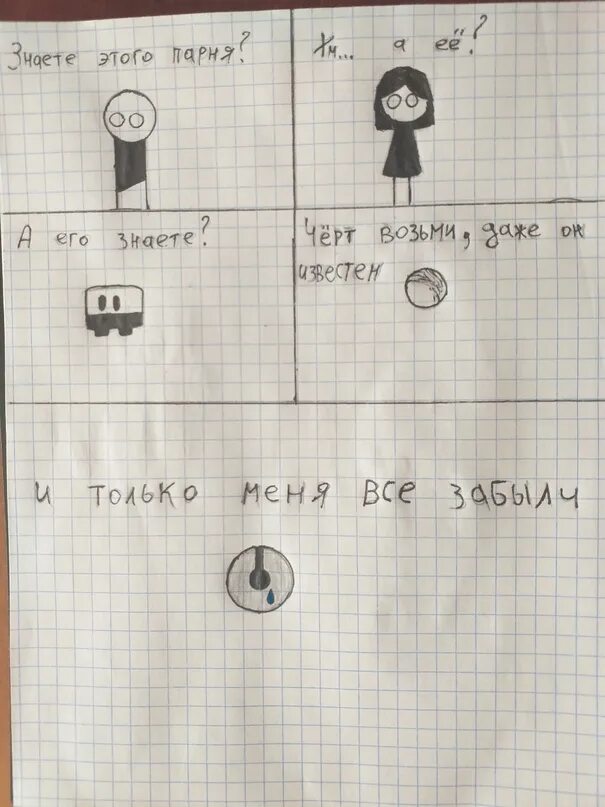 Знаете этого парня?
Хм... а её?
А его знаете?
Чёрт возьми, даже он
известен
и только меня все забыли